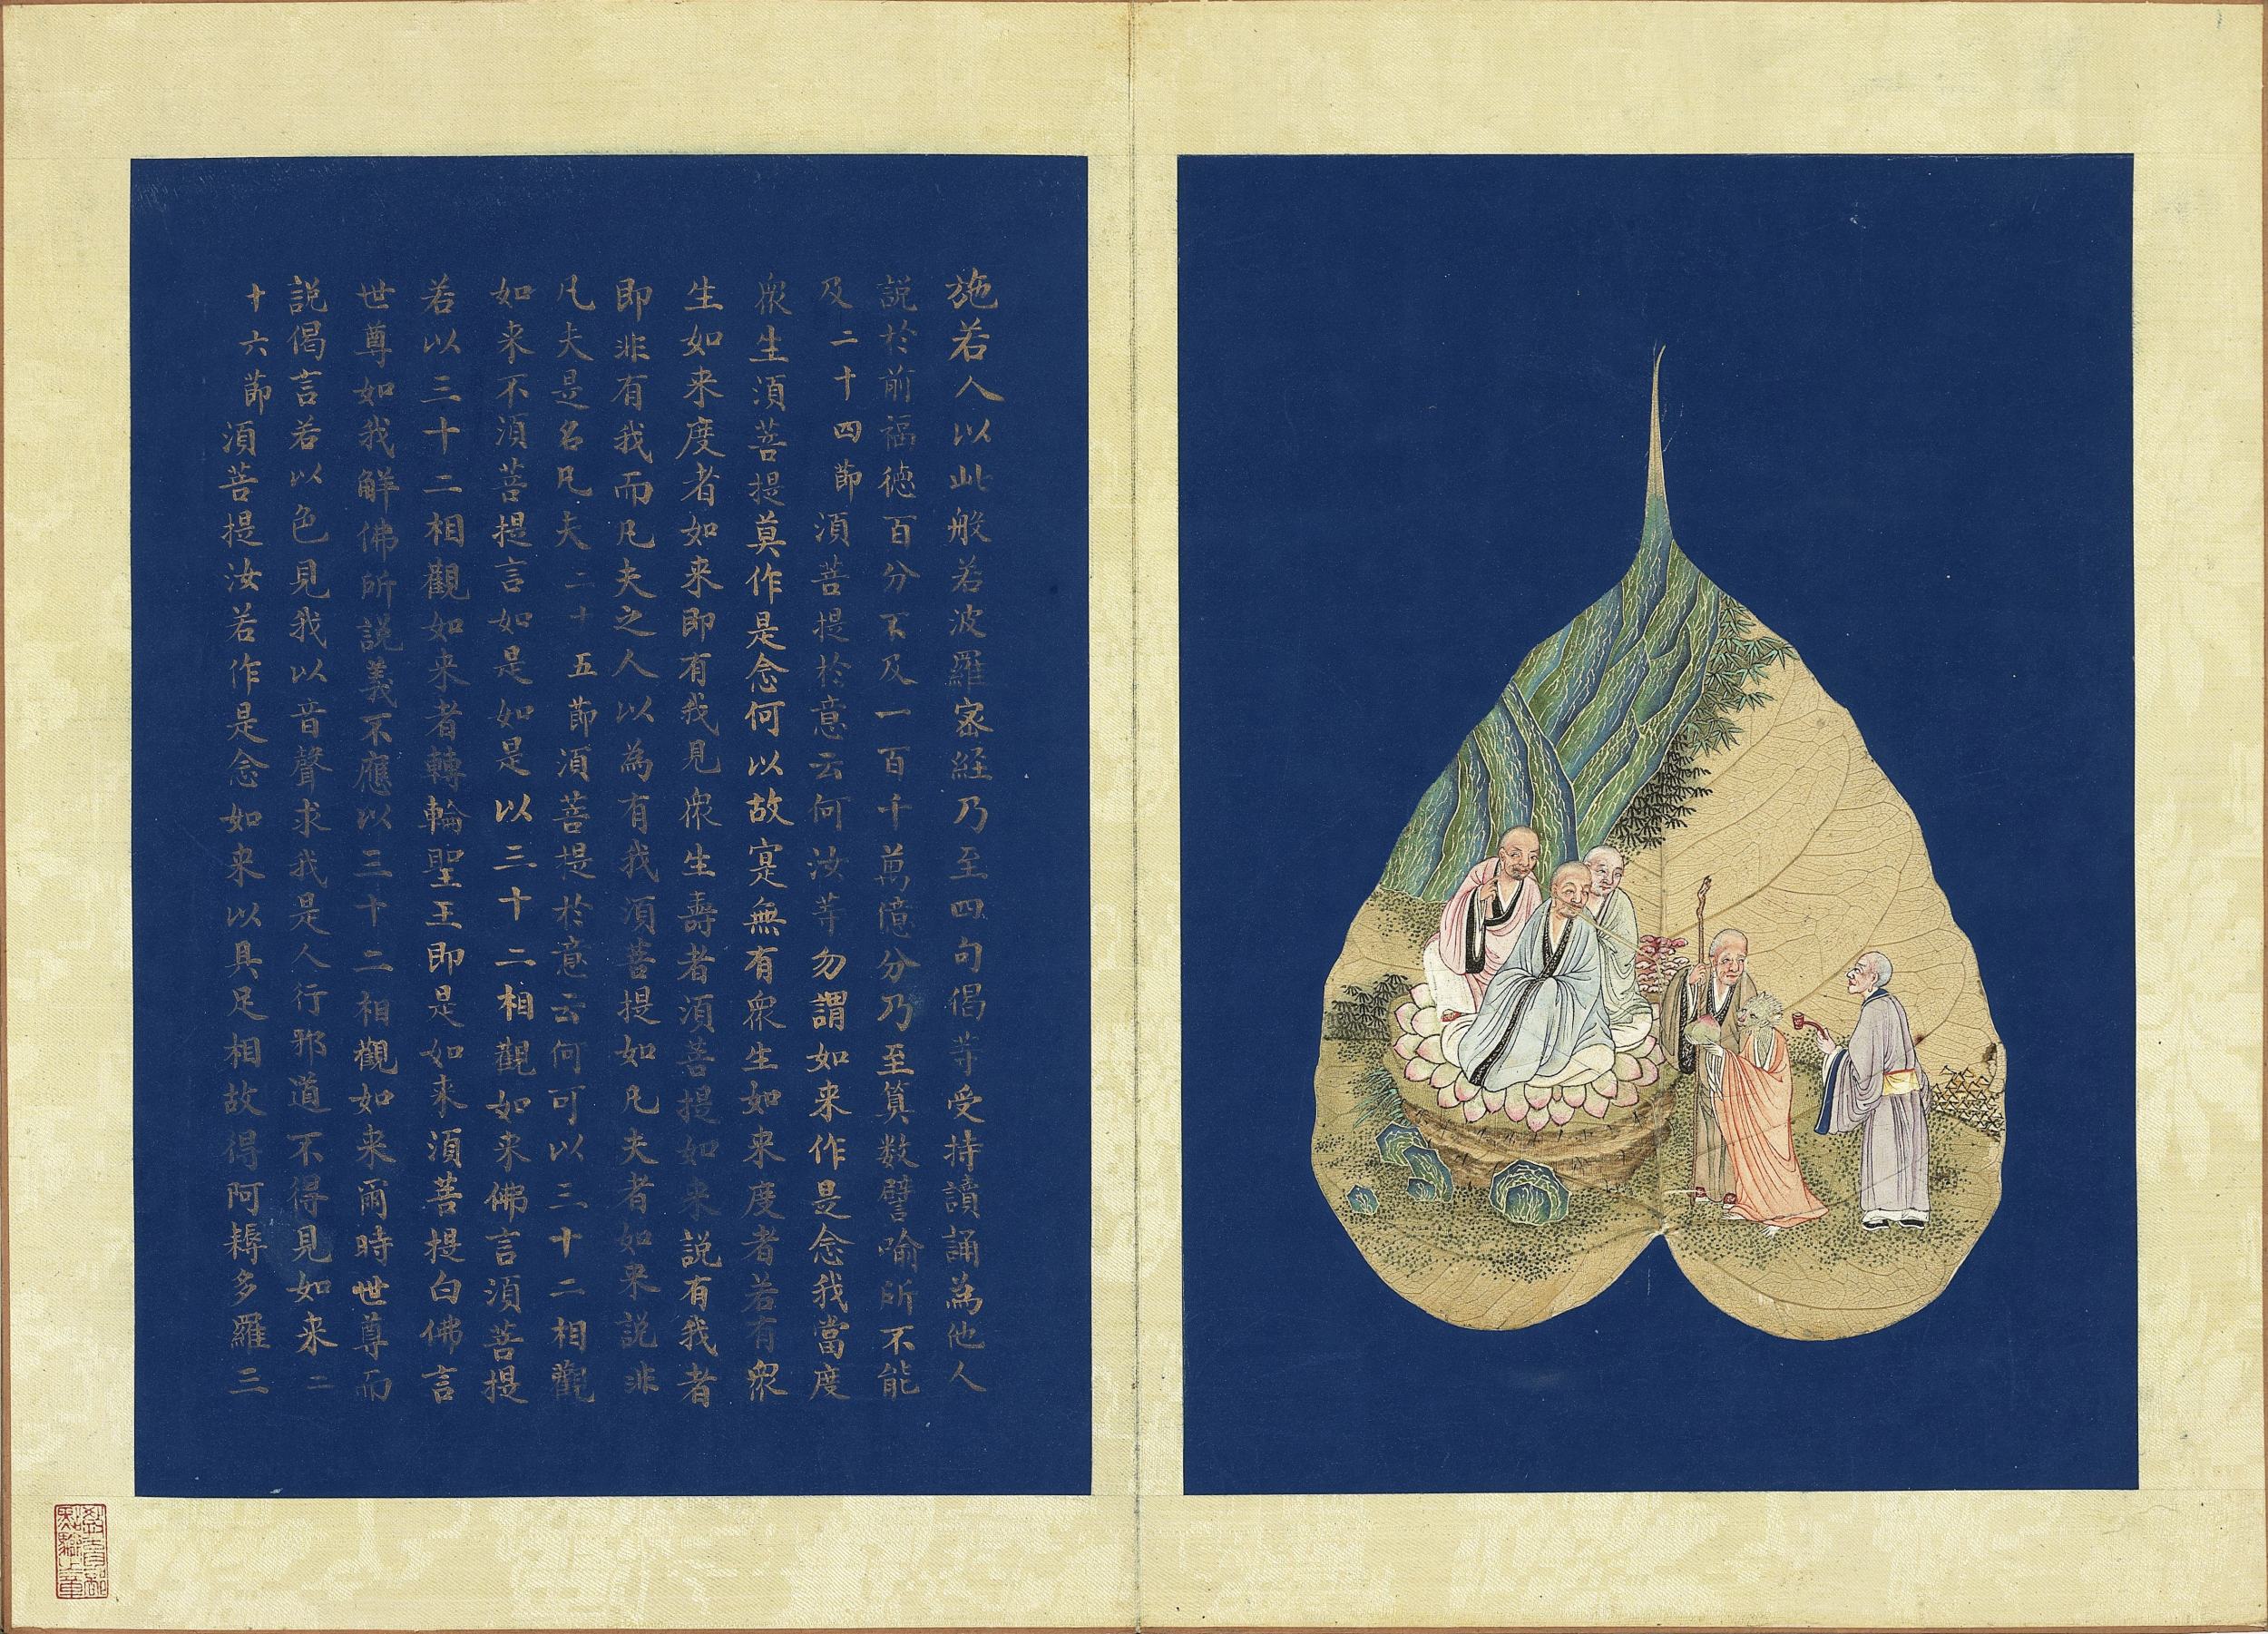 施若人以此般若波羅宻経乃至四句偈等受持讀誦為他人
説於前福德百分不及一百千萬億分乃至算数譬喻所不能
及二十四節湏菩提於意云何汝等勿謂如来作是念我當度
衆生湏菩提莫作是念何以故寔無有衆生如来度者若有衆
生如来度者如来即有我見衆生壽者湏菩提如来説有我者
即非有我而凡夫之人以為有我湏菩提如凡夫者如来説非
凡夫是名凡夫二十五節湏菩提於意云何可以三十二相觀
如来不湏菩提言如是如是以三十二相觀如来佛言湏菩提
若以三十二相觀如来者轉輪聖王即是如来湏菩提白佛言
世尊如我解佛所説義不應以三十二相觀如来爾時世尊而
説偈言若以色見我以音聲求我是人行邪道不得見如来二
十六節湏菩提汝若作是念如来以具足相故得阿耨多羅三